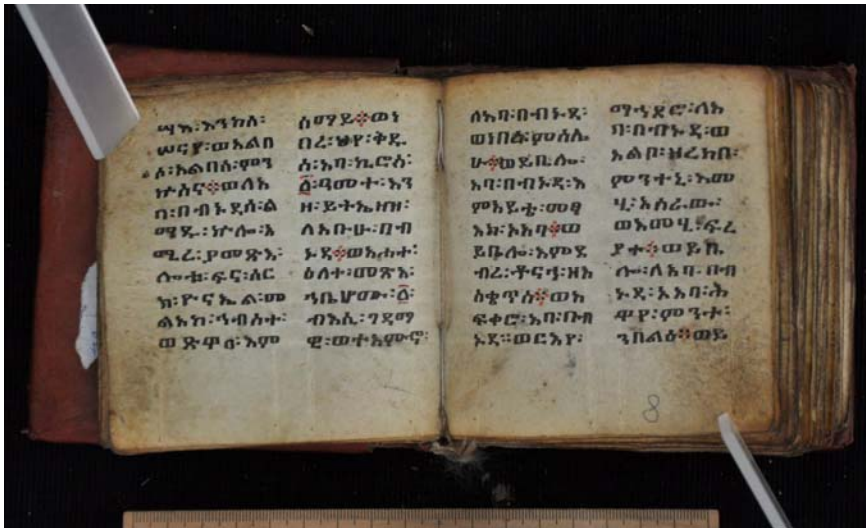 ሣእ፡እንከሰ፡
ሠናየ፡ወአልበ
ሶ፡አልባሰ፡ምን
ኵስና፨ወለአ
ባ፡በብኑዳሰ፡ል
ማዱ፡ኵሎ፡አ
ሚረ፡ያመጽእ፡
ሎቱ፡ፍና፡ሰር
ክ፡ዮናኤል፡መ
ልአክ፡ኅብስተ፡
ወጽዋዐ፡እም
ሰማይ፨ወነ
በረ፡ህየ፡ቅዱ
ስ፡አባ፡ኪሮስ፡
፩፡ዓመተ፡እን
ዘ፡ይትኤዘዝ፡
ለአቡሁ፡በብ
ኑዳ፨ወአሐተ፡
ዕለተ፡መጽአ፡
ኀቤሆሙ፡፩፡
ብእሲ፡ገዳማ
ዊ፡ወተአምኖ፡
ለአባ፡በብኑዳ፡
ወነበረ፡ምስሌ
ሁ፨ወይቤሎ፡
አባ፡በብኑዳ፡እ
ምአይቴ፡መፃ
እከ፡ኦአባ፨ወ
ይቤሎ፡እምደ
ብረ፡ቶናኂ፡ዘአ
ስቄጥስ፨ወአ
ፍቀሮ፡አባ፡በብ
ኑዳ።ወርእየ፡
ማኅደሮ፡ለአ
ባ፡በብኑዳ፡ወ
አልቦ፡ዝረከበ፡
ምንተኒ፡እመ
ሂ፡አስራው፡
ወእመሂ፡ፍሬ
ያተ፨ወይቤ
ሎ፡ለአባ፡በብ
ኑዳ፡ኦአባ፡ሕ
ዋየ፡ምንተ፡
ንበልዕ፨ወይ
8